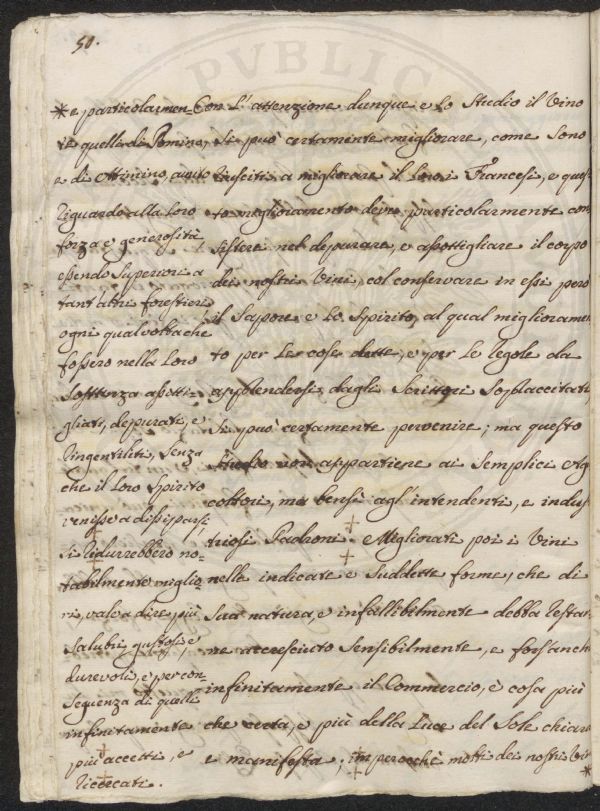 50.
Con l'attenzione dunque e lo Studio il Vino
si può certamente migliorare, come sono
riusciti a migliorare il loro i Francesi, e ques-
to miglioramento deve particolarmente con-
sistere nel depurare, e assottigliare il corpo
dei nostri Vini, col conservare in essi però
il Sapore e lo Spirito, al qual miglioramen-
to per le cose dette, e per le regole da
apprendersi dagli Scrittori Soplaccitati
si può certamente pervenire; ma questo
studio non appartiene ai Semplici Ag-
coltori, ma bensì agl'intendenti, e indus-
triosi Padroni. e Migliorati poi i Vini
nelle indicate e Suddette forme, che di
Sua natura, e infallibilmente debba restar-
ne accresciuto Sensibilmente, e forsanche
infinitamente il Commercio, è cosa più
che certa, e più della Luce del Sole chiara
e manifesta; imperocchè molti dei nostri Vi-
* e particolarmen-
te quelli di Pomino,
e di Artimino, avuto
riguardo alla loro
forza e generosità,
essendo Superiori a
tant'altri forestieri,
ogni qualvolta che
fossero nella loro
Sosttenza assotti-
gliati, deppurati, e
ringentiliti, Senza
che il loro Spirito
venisse a dissiparsi
si ridurrebbero no-
tabilmente miglio-
ri, vale a dire, più
Salubri, gustosi, e
durevoli, e per con-
seguenza di quelli
infinitamente
più accetti, e
ricercati.
PVBLIC